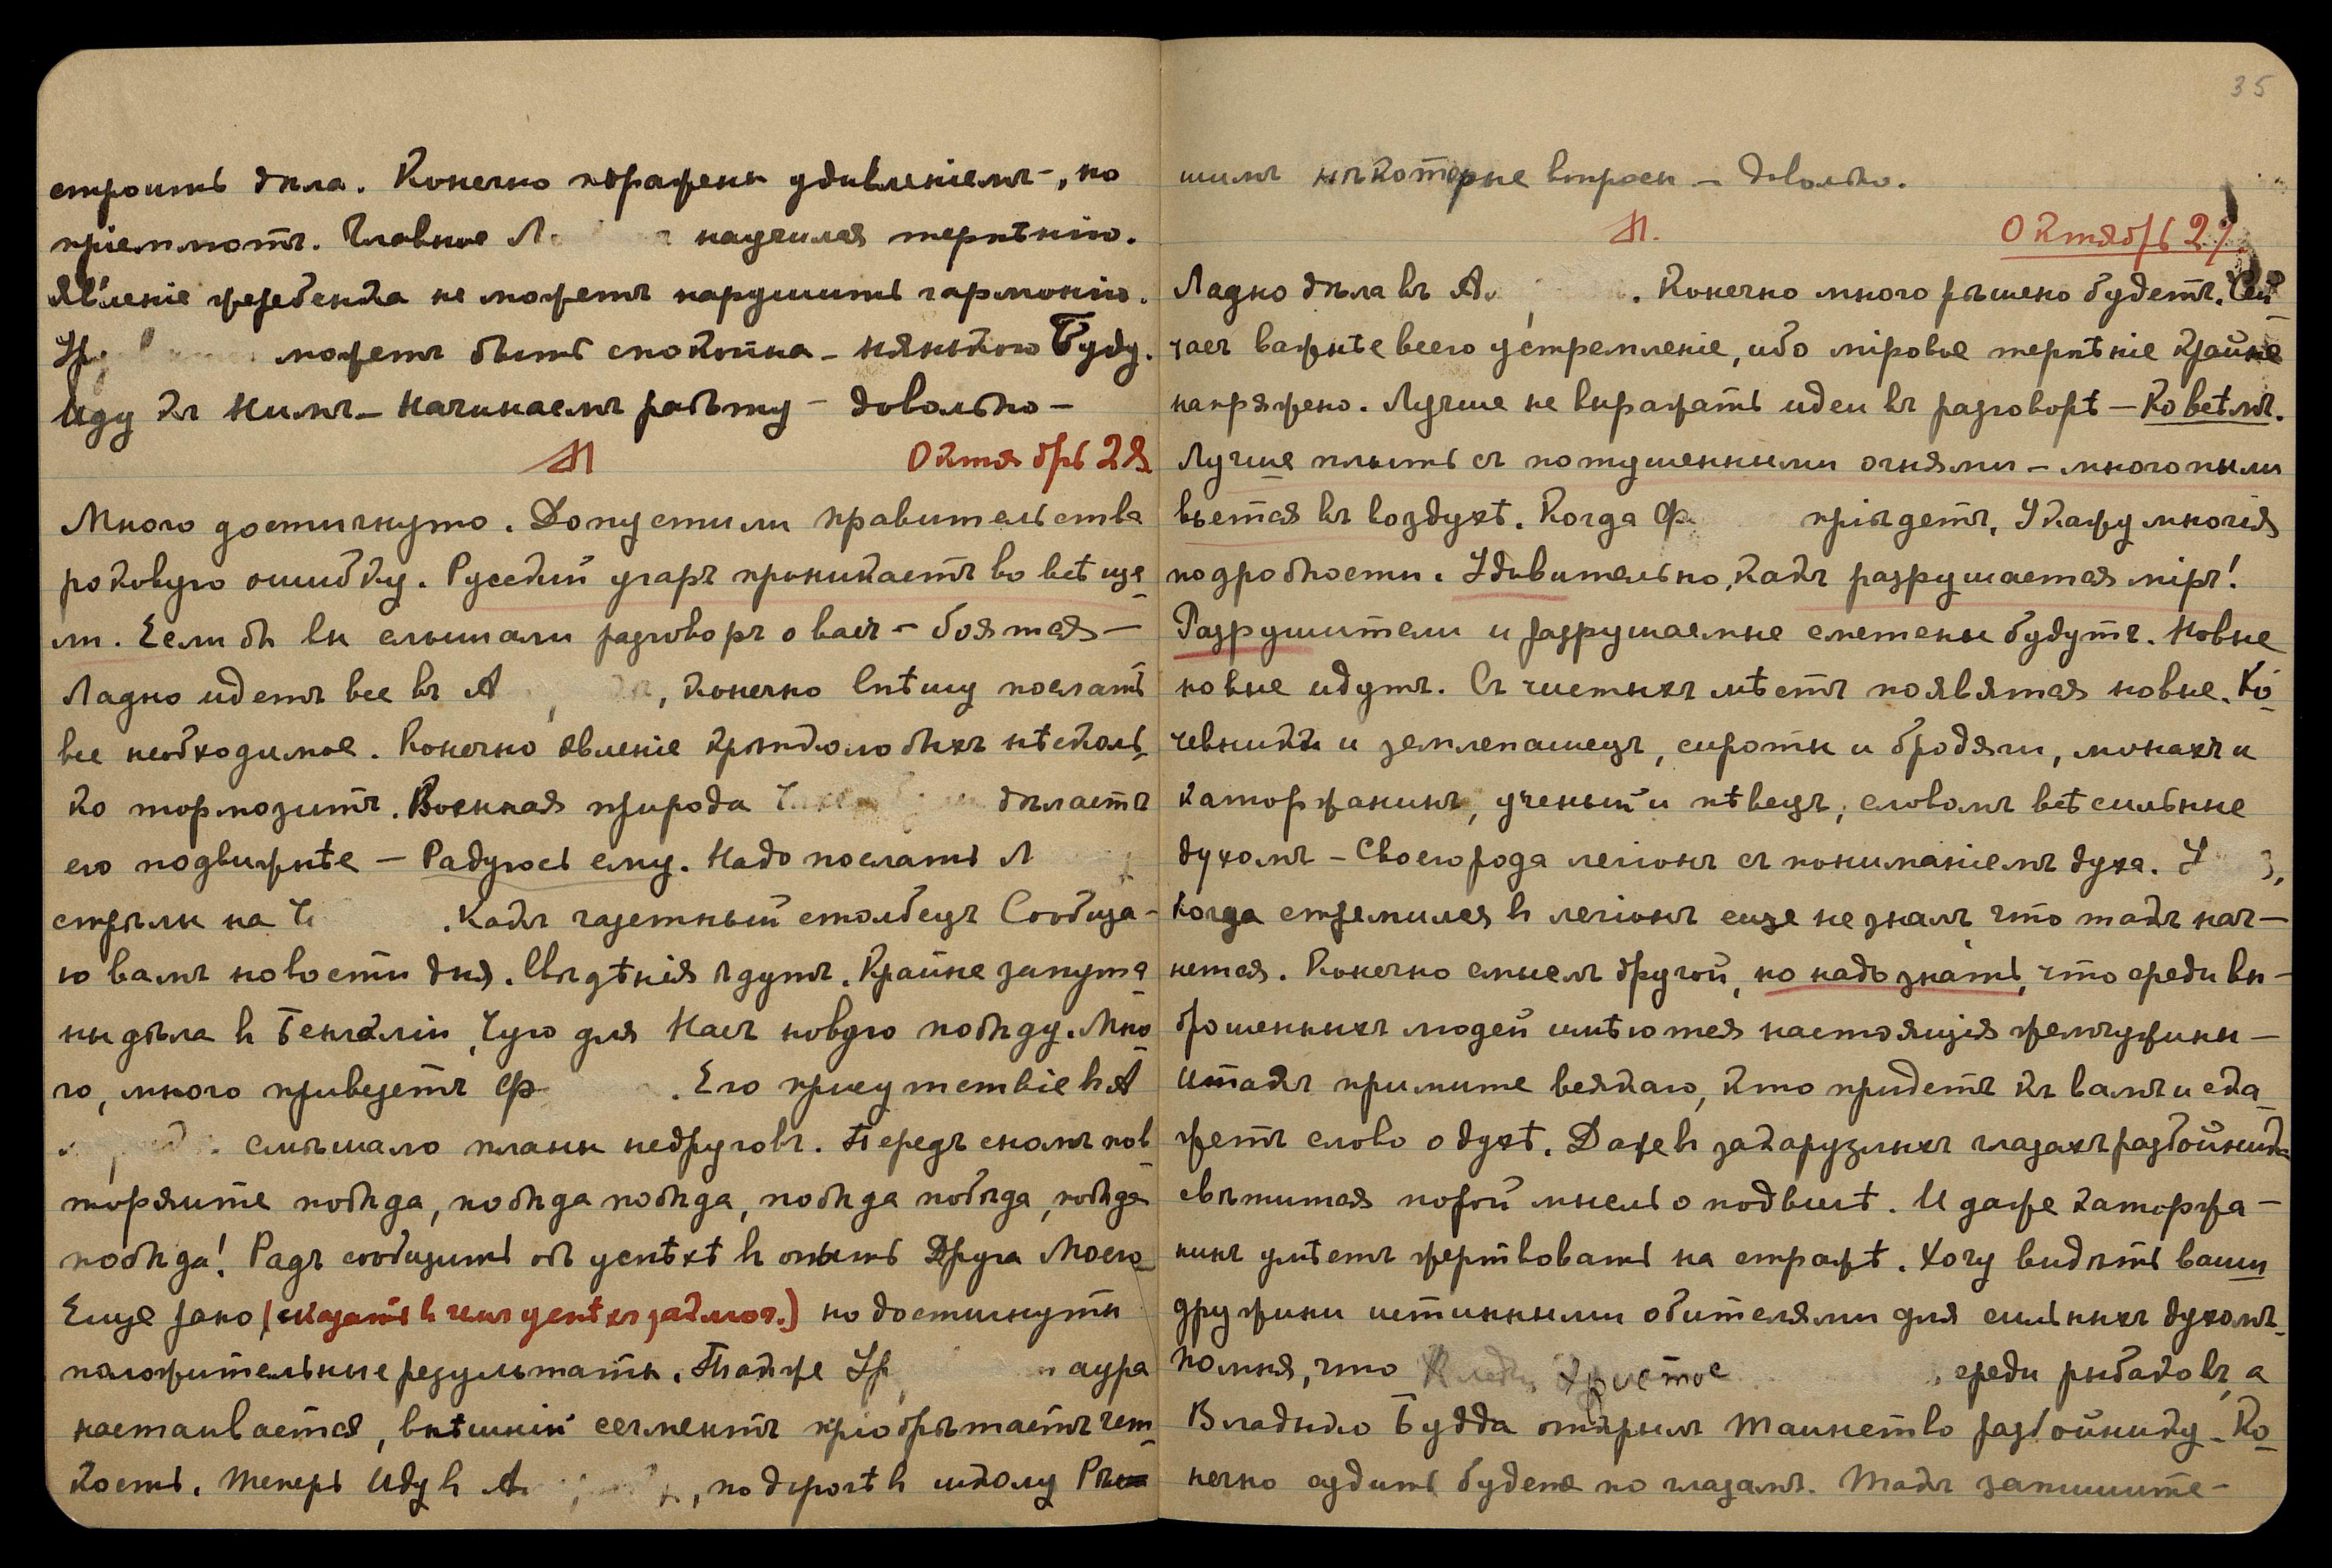 строить дѣла. Конечно поражены удивленіемъ, но
пріемлютъ. Главное Л научилась терпѣнію.
Явленіе жеребенка не можетъ нарушить гармонію.
Ур можетъ быть спокойна – нянькою Буду.
Иду къ Нимъ – Начинаемъ работу – довольно –
Октябрь 28
Много достигнуто. Допустили правительства
роковую ошибку. Русскій угаръ проникаетъ во всѣ ще-
ли. Если бы вы слышали разговоръ о васъ – боятся –
Ладно идетъ все въ А , конечно спѣшу послать
все необходимое. Конечно явленіе крѣпколобыхъ нѣсколь-
ко тормозитъ. Военная природа Ч дѣлаетъ
его подвижнѣе – Радуюсь ему. Надо послать Л
стрѣлы на Ч . Какъ газетный столбецъ Сообща-
ю вамъ новости дня. Свѣдѣнія ѣдутъ. Крайне запута-
ны дѣла в Бенгаліи, Чую для Насъ новую побѣду. Мно-
го, много привезетъ Ф . Его присутствіе в А
смѣшало планы недруговъ. Передъ сномъ пов-
торяйте побѣда, побѣда побѣда, побѣда побѣда, побѣда
побѣда! Радъ сообщить объ успѣхѣ в опытѣ Друга Моего
Еще рано (сказать в чемъ успѣхъ заключ.) но достигнуты
положительные результаты. Также Ур аура
настаивается, внѣшній сегментъ пріобрѣтаетъ чет-
кость. Теперь Иду в А , по дорогѣ в школу
35
шилъ нѣкоторые вопросы – довольно.
Октябрь 29.
Ладно дѣла въ А . Конечно много рѣшено будетъ. Сей-
часъ важнѣе всего устремленіе, ибо міровое терпѣніе крайне
напряжено. Лучше не выражать идеи въ разговорѣ – Ко всѣмъ.
Лучше плыть съ потушенными огнями – много пыли
вьется въ воздухѣ. Когда Ф пріѣдетъ, Укажу многія
подробности. Удивительно, какъ разрушается міръ!
Разрушители и разрушаемые сметены будутъ. Новые
новые идутъ. Съ чистыхъ мѣстъ появятся новые. Ко-
чевники и землепашецъ, сироты и бродяги, монахъ и
каторжанинъ, ученый и пѣвецъ, словомъ всѣ сильные
духомъ – Своего рода легіонъ съ пониманіемъ духа. У ,
когда стремился в легіонъ еще не зналъ что такъ нач-
нется. Конечно смыслъ другой, но надо знать, что среди вы-
брошенныхъ людей имѣются настоящія жемчужины –
Итакъ примите всякаго, кто придетъ къ вамъ и ска-
жетъ слово о духѣ. Даже в закарузлыхъ глазахъ разбойника
свѣтится порой мысль о подвигѣ. И даже каторжа-
нинъ умѣетъ жертвовать на стражѣ. Хочу видѣть ваши
дружины истинными обителями для сильныхъ духомъ.
Помня, что Христос среди рыбаковъ, а
Владыко Будда открылъ таинство разбойнику – Ко-
нечно судить будете по глазамъ. Такъ запишите –